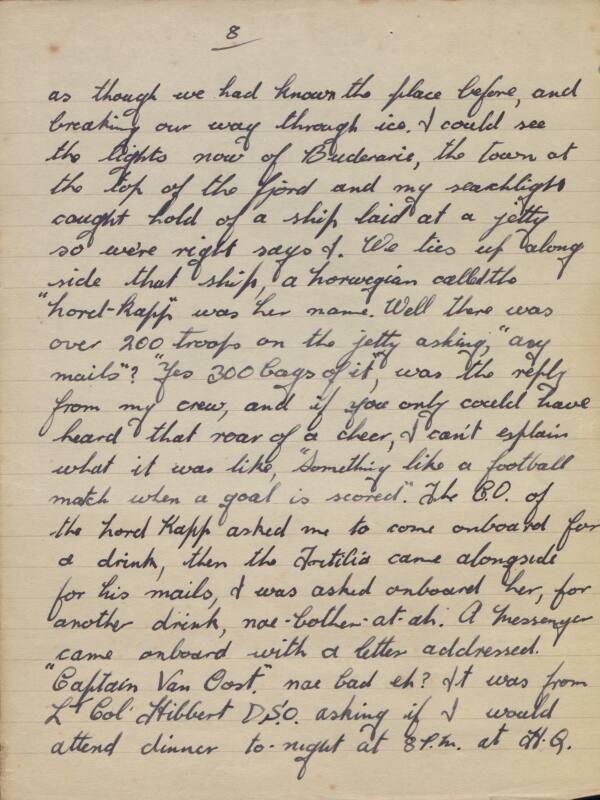 8
as though we had known the place before, and
breaking our way through ice. I could see
the lights now of Buderarie, the town at
the top of the fjord and my searchlight
caught hold of a ship laid at a jetty
so we're right says I. We ties up along
side that ship, a norwegian called the
"Nord-Kapp" was her name. Well there was
over 200 troops on the jetty asking, "any
mails"? "Yes 300 bags of it", was the reply
from my crew, and if you only could have
heard that roar of a cheer, I can't explain
what it was like, "Something like a football
match when a goal is scored". The C.O. of
the Nord Kapp asked me to come onboard for
a drink, then the came alongside
for his mails, I was asked onboard her, for
another drink, nae-bother-at-ah. A Messenger
came onboard with a letter addressed.
"Captain Van Oost." nae bad eh? It was from
Lt Col. Hibbert D.S.O. asking if I would
attend dinner to-night at 8 P.m. at H.Q.